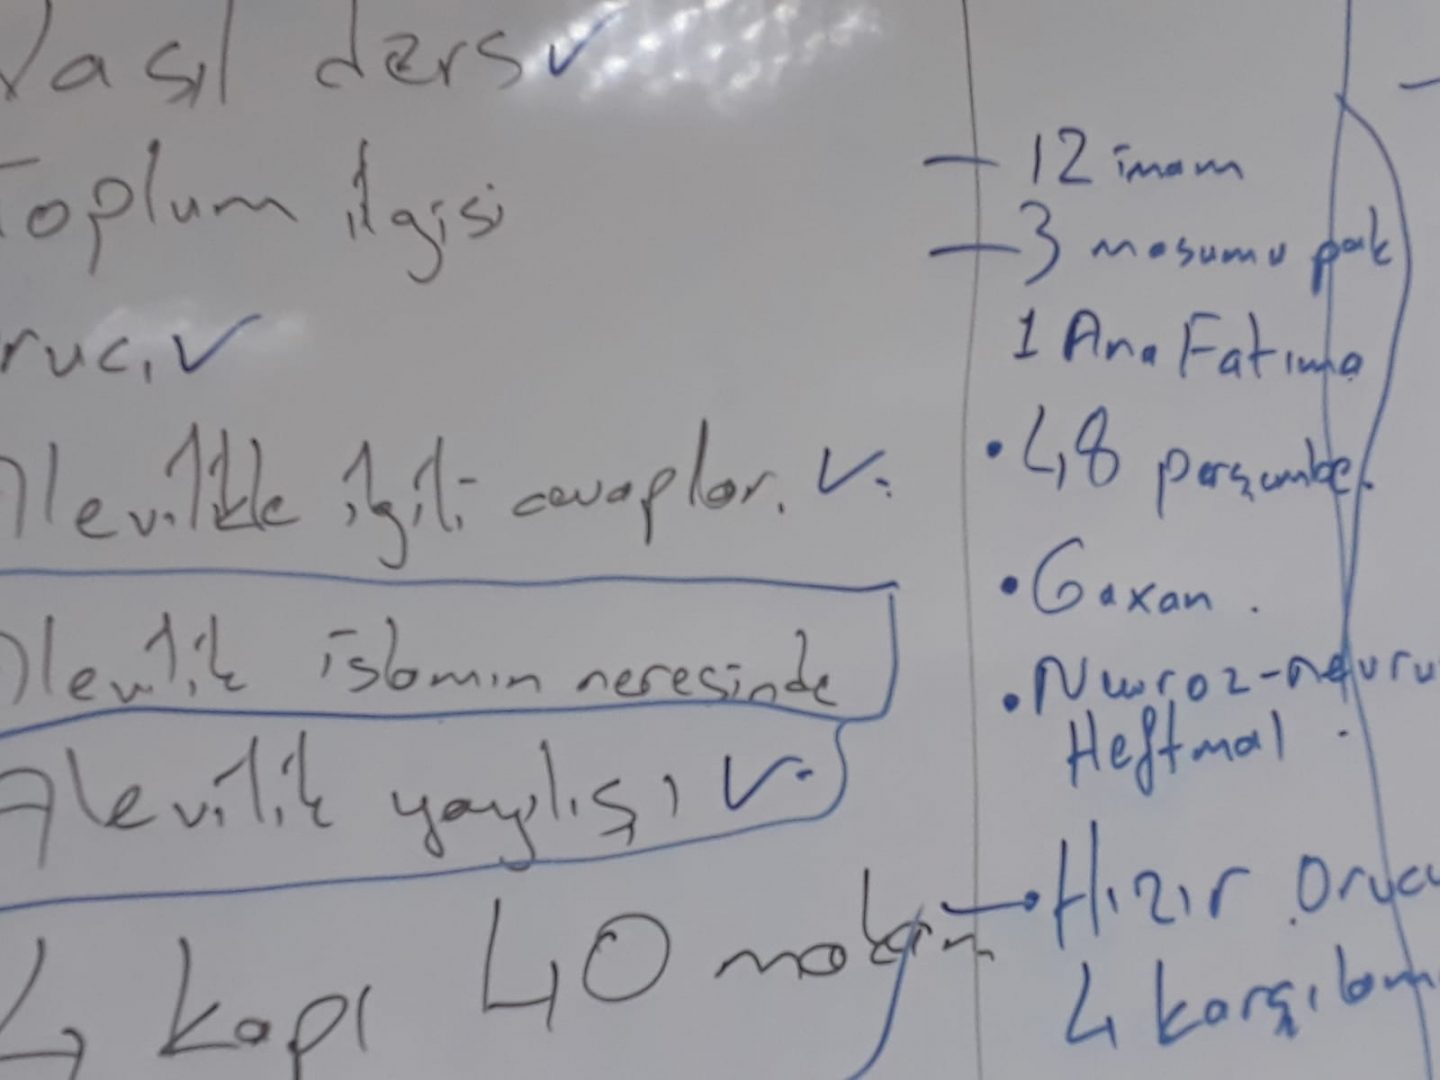 Nasıl ders
Toplum ilgisi
orucı
Alevilikle ilgili cevaplar.
Alevilik islamın neresinde
Alevilik yayılışı
4 kapı 40 makam
12 imam
3 masumu pak
1 Ana Fatıma
48 perşembe.
Gaxan.
Nwroz-nevru
Heftmal
Hızır Orucu
4 karşılam